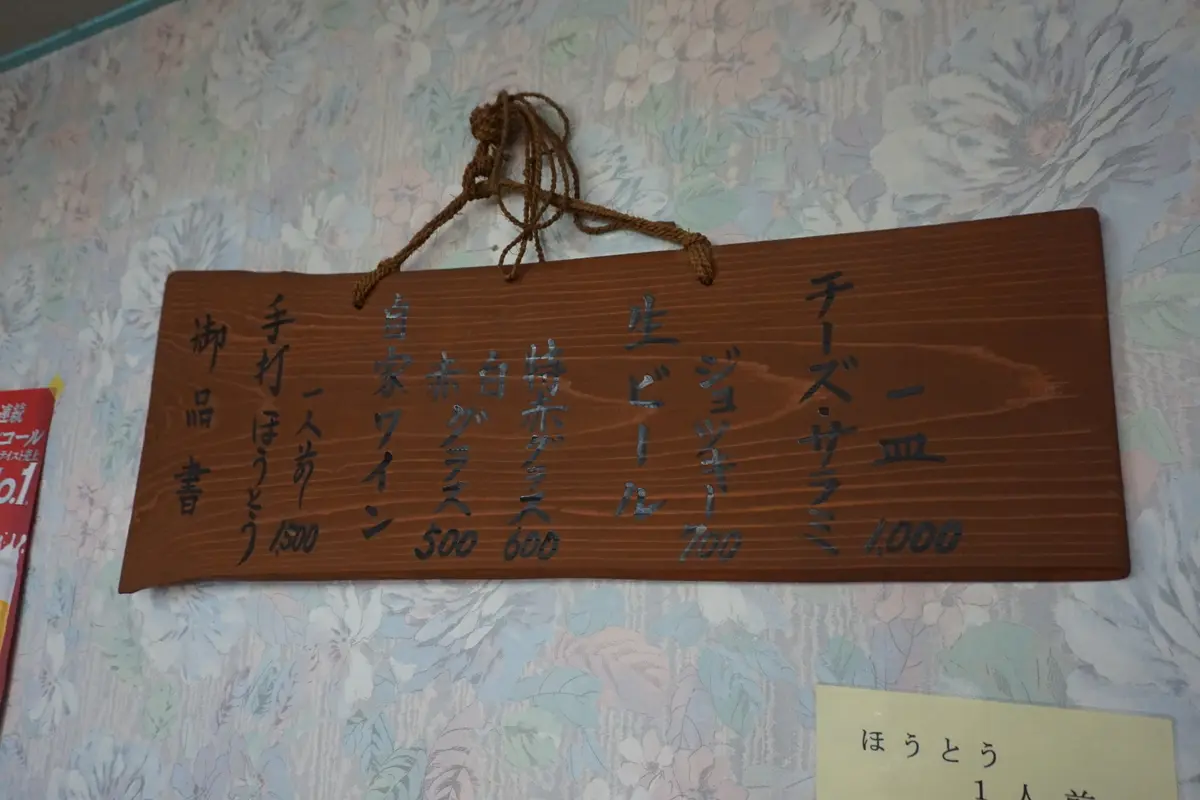 御品書
手打ほうとう
一人前 1,500
自家ワイン
赤白グラス 500
特赤グラス 600
生ビール
ジョッキー 700
チーズ・サラミ
一皿 1,000
連続
コール
o.1
ほうとう
1人前